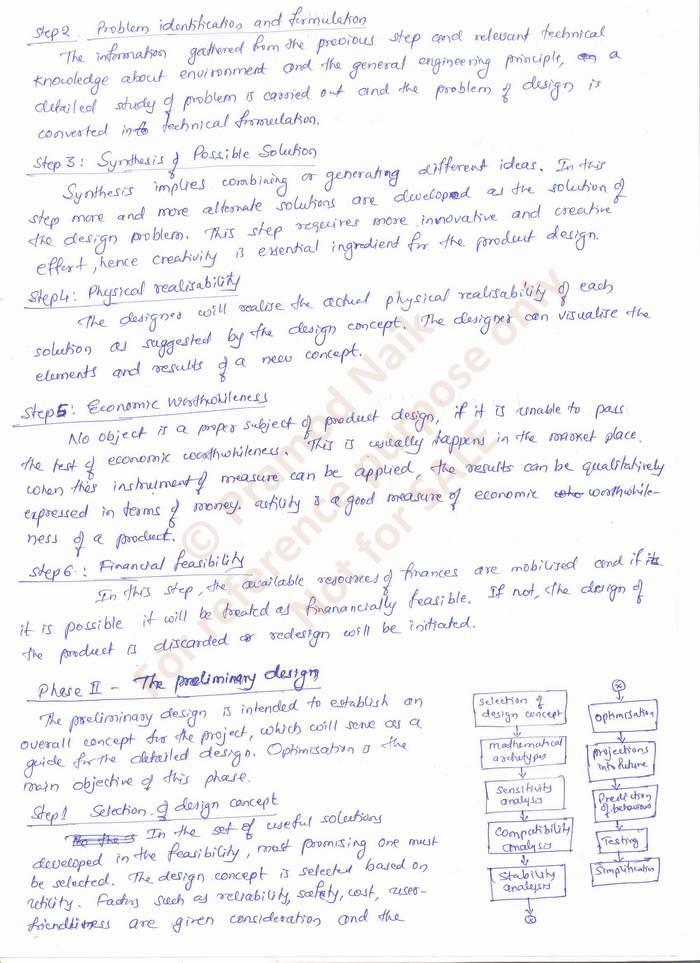 Step2. Problem identification and formulation
The information gathered from the previous step and relevant technical
knowledge about environment and the general engineering principle, a
detailed study of problem is carried out and the problem of design is
converted into technical formulation.
Step 3: Synthesis of Possible Solution
Synthesis implies combining or generating different ideas. In this
step more and more alternate solutions are developed as the solution of
the design problem. This step requires more innovative and creative
effort, hence creativity is essential ingredient for the product design.
Step4: Physical realisability
The designer will realise the actual physical realisability of each
solution as suggested by the design concept. The designer can visualise the
elements and results of a new concept.
Step5: Economic worthwhileness
No object is a proper subject of product design, if it is unable to pass
the test of economic worthwhileness. This is usually happens in the market place.
when this instrument of measure can be applied, the results can be qualitatively
expressed in terms of money. utility is a good measure of economic worthwhile-
ness of a product.
Step6: Financial feasibility
In this step, the available resources of finances are mobilised and if
it is possible it will be treated as finanancially feasible. If not, the design of
the product is discarded or redesign will be initiated.
Phase II - The preliminary design
The preliminary design is intended to establish an
overall concept for the project, which will serve as a
guide for the detailed design. Optimisation is the
main objective of this phase.
Step1 Selection of design concept
In the set of useful solutions
developed in the feasibility, most promising one must
be selected. The design concept is selected based on
utility. Factors such as reliability, safety, cost, user-
friendliness are given consideration and the
selection of
design concept
mathematical
archetypes
Sensitivity
analysis
Compatibility
analysis
Stability
analysis
Optimisation
projections
into future
Prediction
of behaviour
Testing
Simplification
© Pramod Naik
For reference purpose only
Not for SALE